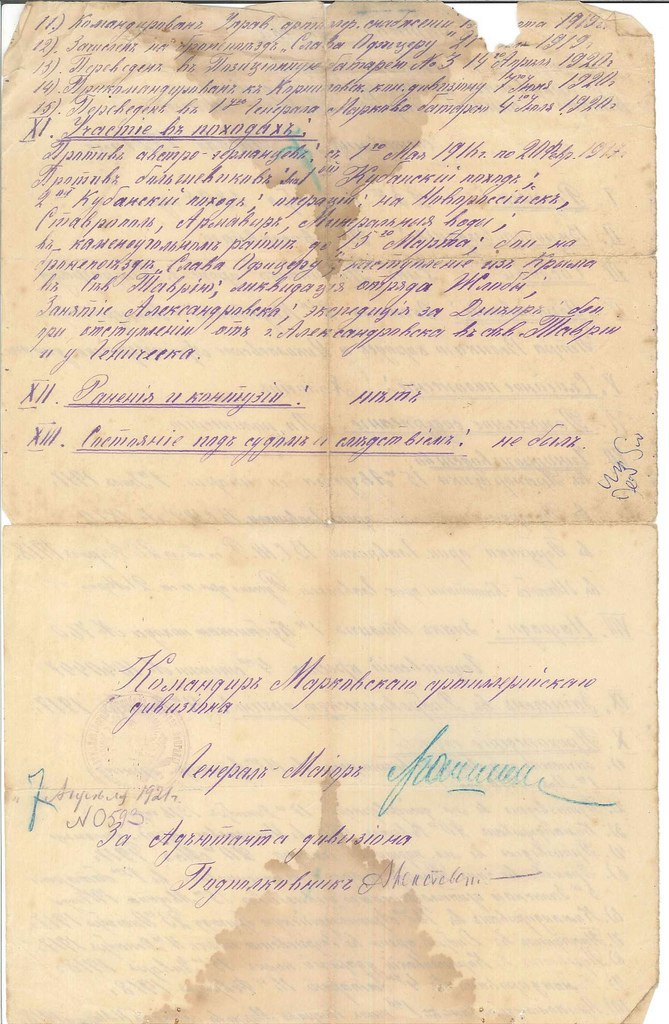 11.) Командированъ Управ. артиллер. снабженій 1919г.
12). Зачисленъ на бронепоѣздъ „Слава Офицеру" 21 1919.
13). Переведенъ въ Позиціонную батарею № 3 14го Апрѣля 1920г
14). Прикомандированъ къ Корниловск. кон. дивизіону 7го Іюня 1920г
15). Переведенъ въ 1ую Генерала Маркова батарею 4го Іюля 1920г
XI. Участіе въ походахъ:
Противъ австро-германцевъ: съ 1го Мая 1916г. по 20 Февр. 1917г
Противъ большевиковъ: 1ый Кубанскій походъ;
2ой Кубанскій походъ: операціи: на Новороссійскъ,
Ставрополь, Армавиръ, Минеральныя воды;
въ каменоугольномъ раіонѣ до 15го Марта; бои на
бронепоѣздѣ „Слава Офицеру наступленіе изъ Крыма
въ Сѣв Таврію; ликвидація отряда Жлобы,
Занятіе Александровска; экспедиція за Днѣпръ бои
при отступленіи отъ г. Александровска въ сѣв Тавріи
и у Геническа.
XII. Раненія и контузіи: нѣтъ
XIII. Состояніе подъ судомъ и слѣдствіемъ: не былъ.
Командиръ Марковскаго артиллерійскаго
дивизіона
Генералъ-Маіоръ
„7 Апрѣля 1921г.
№ 0593
За Адъютанта дивизіона
Подполковникъ